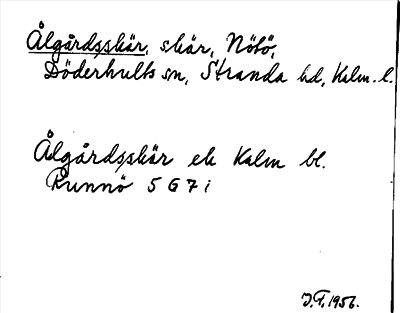 Ålgårdsskär, skär, Nötö,
Döderhults sn, Stranda hd, Kalm. l.
Ålgårdsskär ek Kalm bl.
Runnö 5 G 7 i
J.F. 1956.